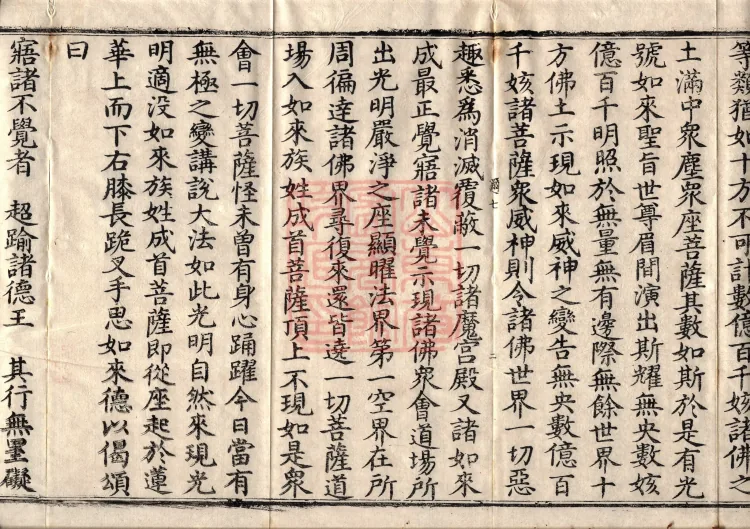 等類猶如十方不可計數億百千姟諸佛之
土滿中衆塵衆座菩薩其數如斯於是有光
號如來聖旨世尊眉間演出斯耀無央數姟
億百千明照於無量無有邊際無餘世界十
方佛土示現如來威神之變告無央數億百
千姟諸菩薩衆威神則令諸佛世界一切惡
趣悉爲消滅覆蔽一切諸魔宮殿又諸如來
成最正覺寤諸未覺示現諸佛衆會道場所
出光明嚴淨之座顯曜法界第一空界在所
周徧達諸佛界尋復來還皆遶一切菩薩道
場入如來族姓成首菩薩頂上不現如是衆
會一切菩薩怪未曾有身心踊躍今日當有
無極之變講說大法如此光明自然來現光
明適没如來族姓成首菩薩即從座起於蓮
華上而下右膝長跪叉手思如來德以偈頌
曰
寤諸不覺者　超踰諸德王　其行無罣礙
七
二